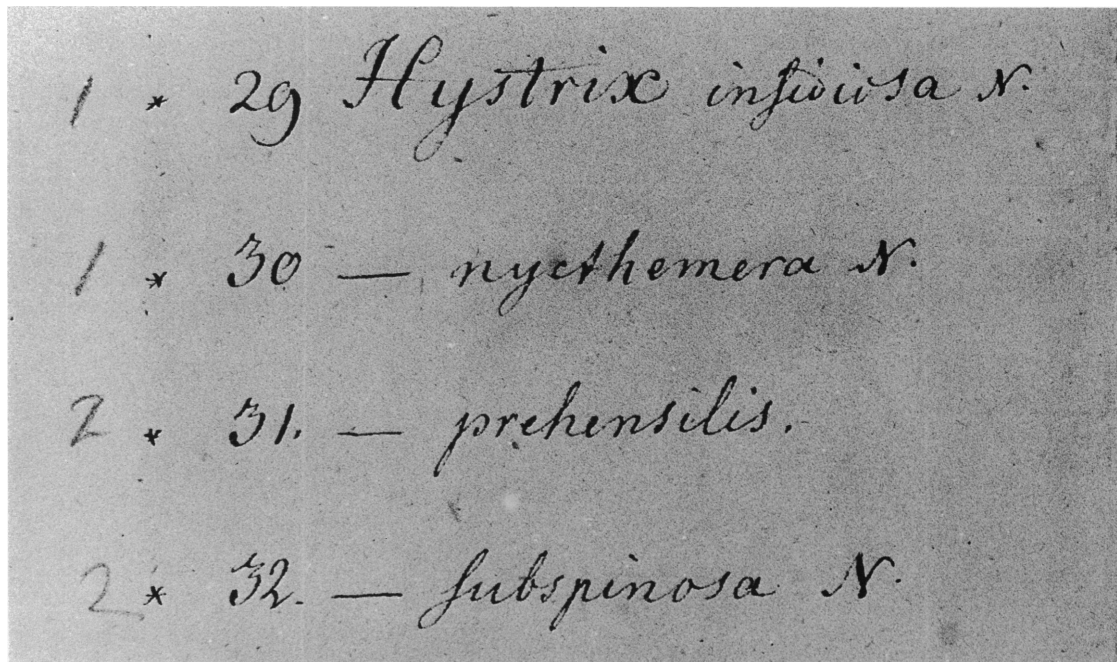 1 * 29 Hystrix insidiosa N.
1 * 30 — nycthemera N.
2 * 31. — prehensilis.
2 * 32. — subspinosa N.